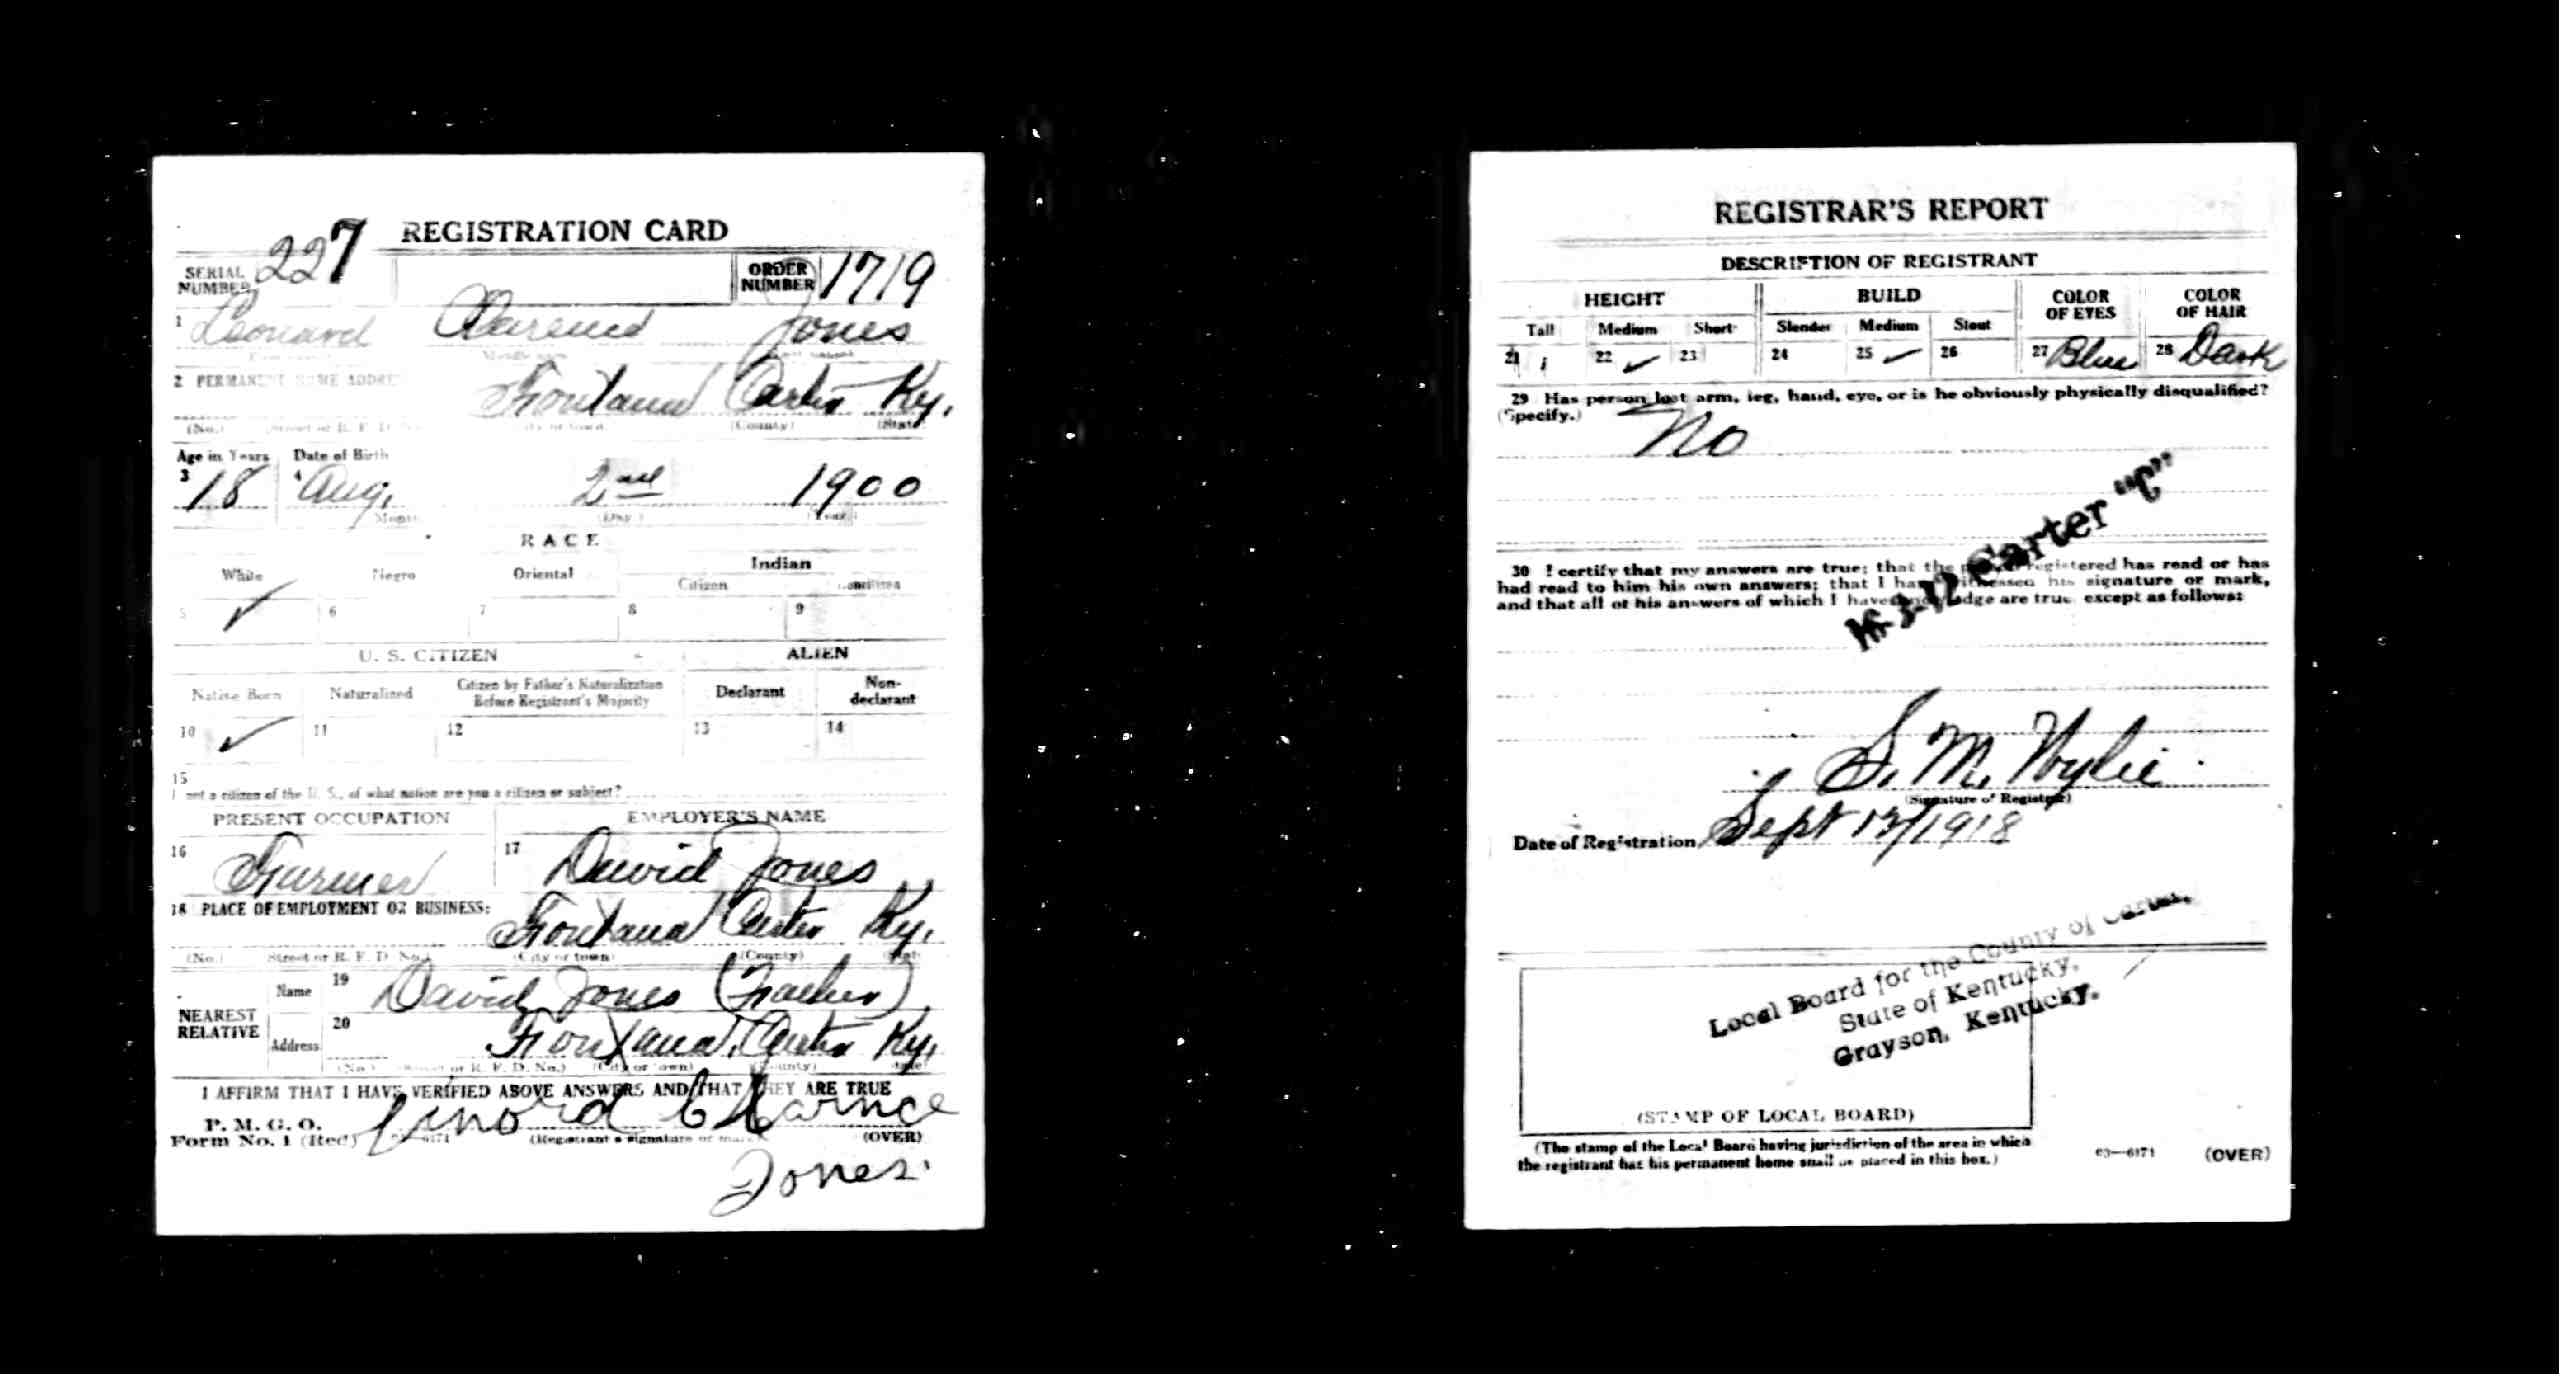 REGISTRATION CARD
SERIAL NUMBER 227 ORDER NUMBER 1719
1 Leonard Clarence Jones
2 PERMANENT HOME ADDRESS
Fontana Carter Ky.
(No.) (Street or R. F. D. No.) (City or town) (County) (State)
Age in Years Date of Birth
3 18 4 Aug. 2nd 1900
(Month) (Day) (Year)
RACE
White Negro Oriental Indian
Citizen Noncitizen
5 ✓ 6 7 8 9
U. S. CITIZEN ALIEN
Native Born Naturalized Citizen by Father's Naturalization Before Registrant's Majority Declarant Non-declarant
10 ✓ 11 12 13 14
15
If not a citizen of the U. S., of what nation are you a citizen or subject?
PRESENT OCCUPATION EMPLOYER'S NAME
16 Farmer 17 David Jones
18 PLACE OF EMPLOYMENT OR BUSINESS:
Fontana Carter Ky.
(No.) (Street or R. F. D. No.) (City or town) (County) (State)
NEAREST RELATIVE Name 19 David Jones (Father)
Address 20 Fontana, Carter Ky.
(No.) (Street or R. F. D. No.) (City or town) (County) (State)
I AFFIRM THAT I HAVE VERIFIED ABOVE ANSWERS AND THAT THEY ARE TRUE
P. M. G. O.
Form No. 1 (Red) (Registrant's signature or mark) (OVER)
Linord Clarnce
Jones
REGISTRAR'S REPORT
DESCRIPTION OF REGISTRANT
HEIGHT BUILD COLOR OF EYES COLOR OF HAIR
Tall Medium Short Slender Medium Stout
21 22 ✓ 23 24 25 ✓ 26 27 Blue 28 Dark
29 Has person lost arm, leg, hand, eye, or is he obviously physically disqualified?
(Specify.) No
Carter "C"
30 I certify that my answers are true; that the person registered has read or has
had read to him his own answers; that I have witnessed his signature or mark,
and that all of his answers of which I have knowledge are true, except as follows:
S. M. Wylie
(Signature of Registrar)
Date of Registration Sept 12/1918
Local Board for the County of Carter,
State of Kentucky,
Grayson, Kentucky.
(STAMP OF LOCAL BOARD)
(The stamp of the Local Board having jurisdiction of the area in which
the registrant has his permanent home shall be placed in this box.)
03—6171 (OVER)